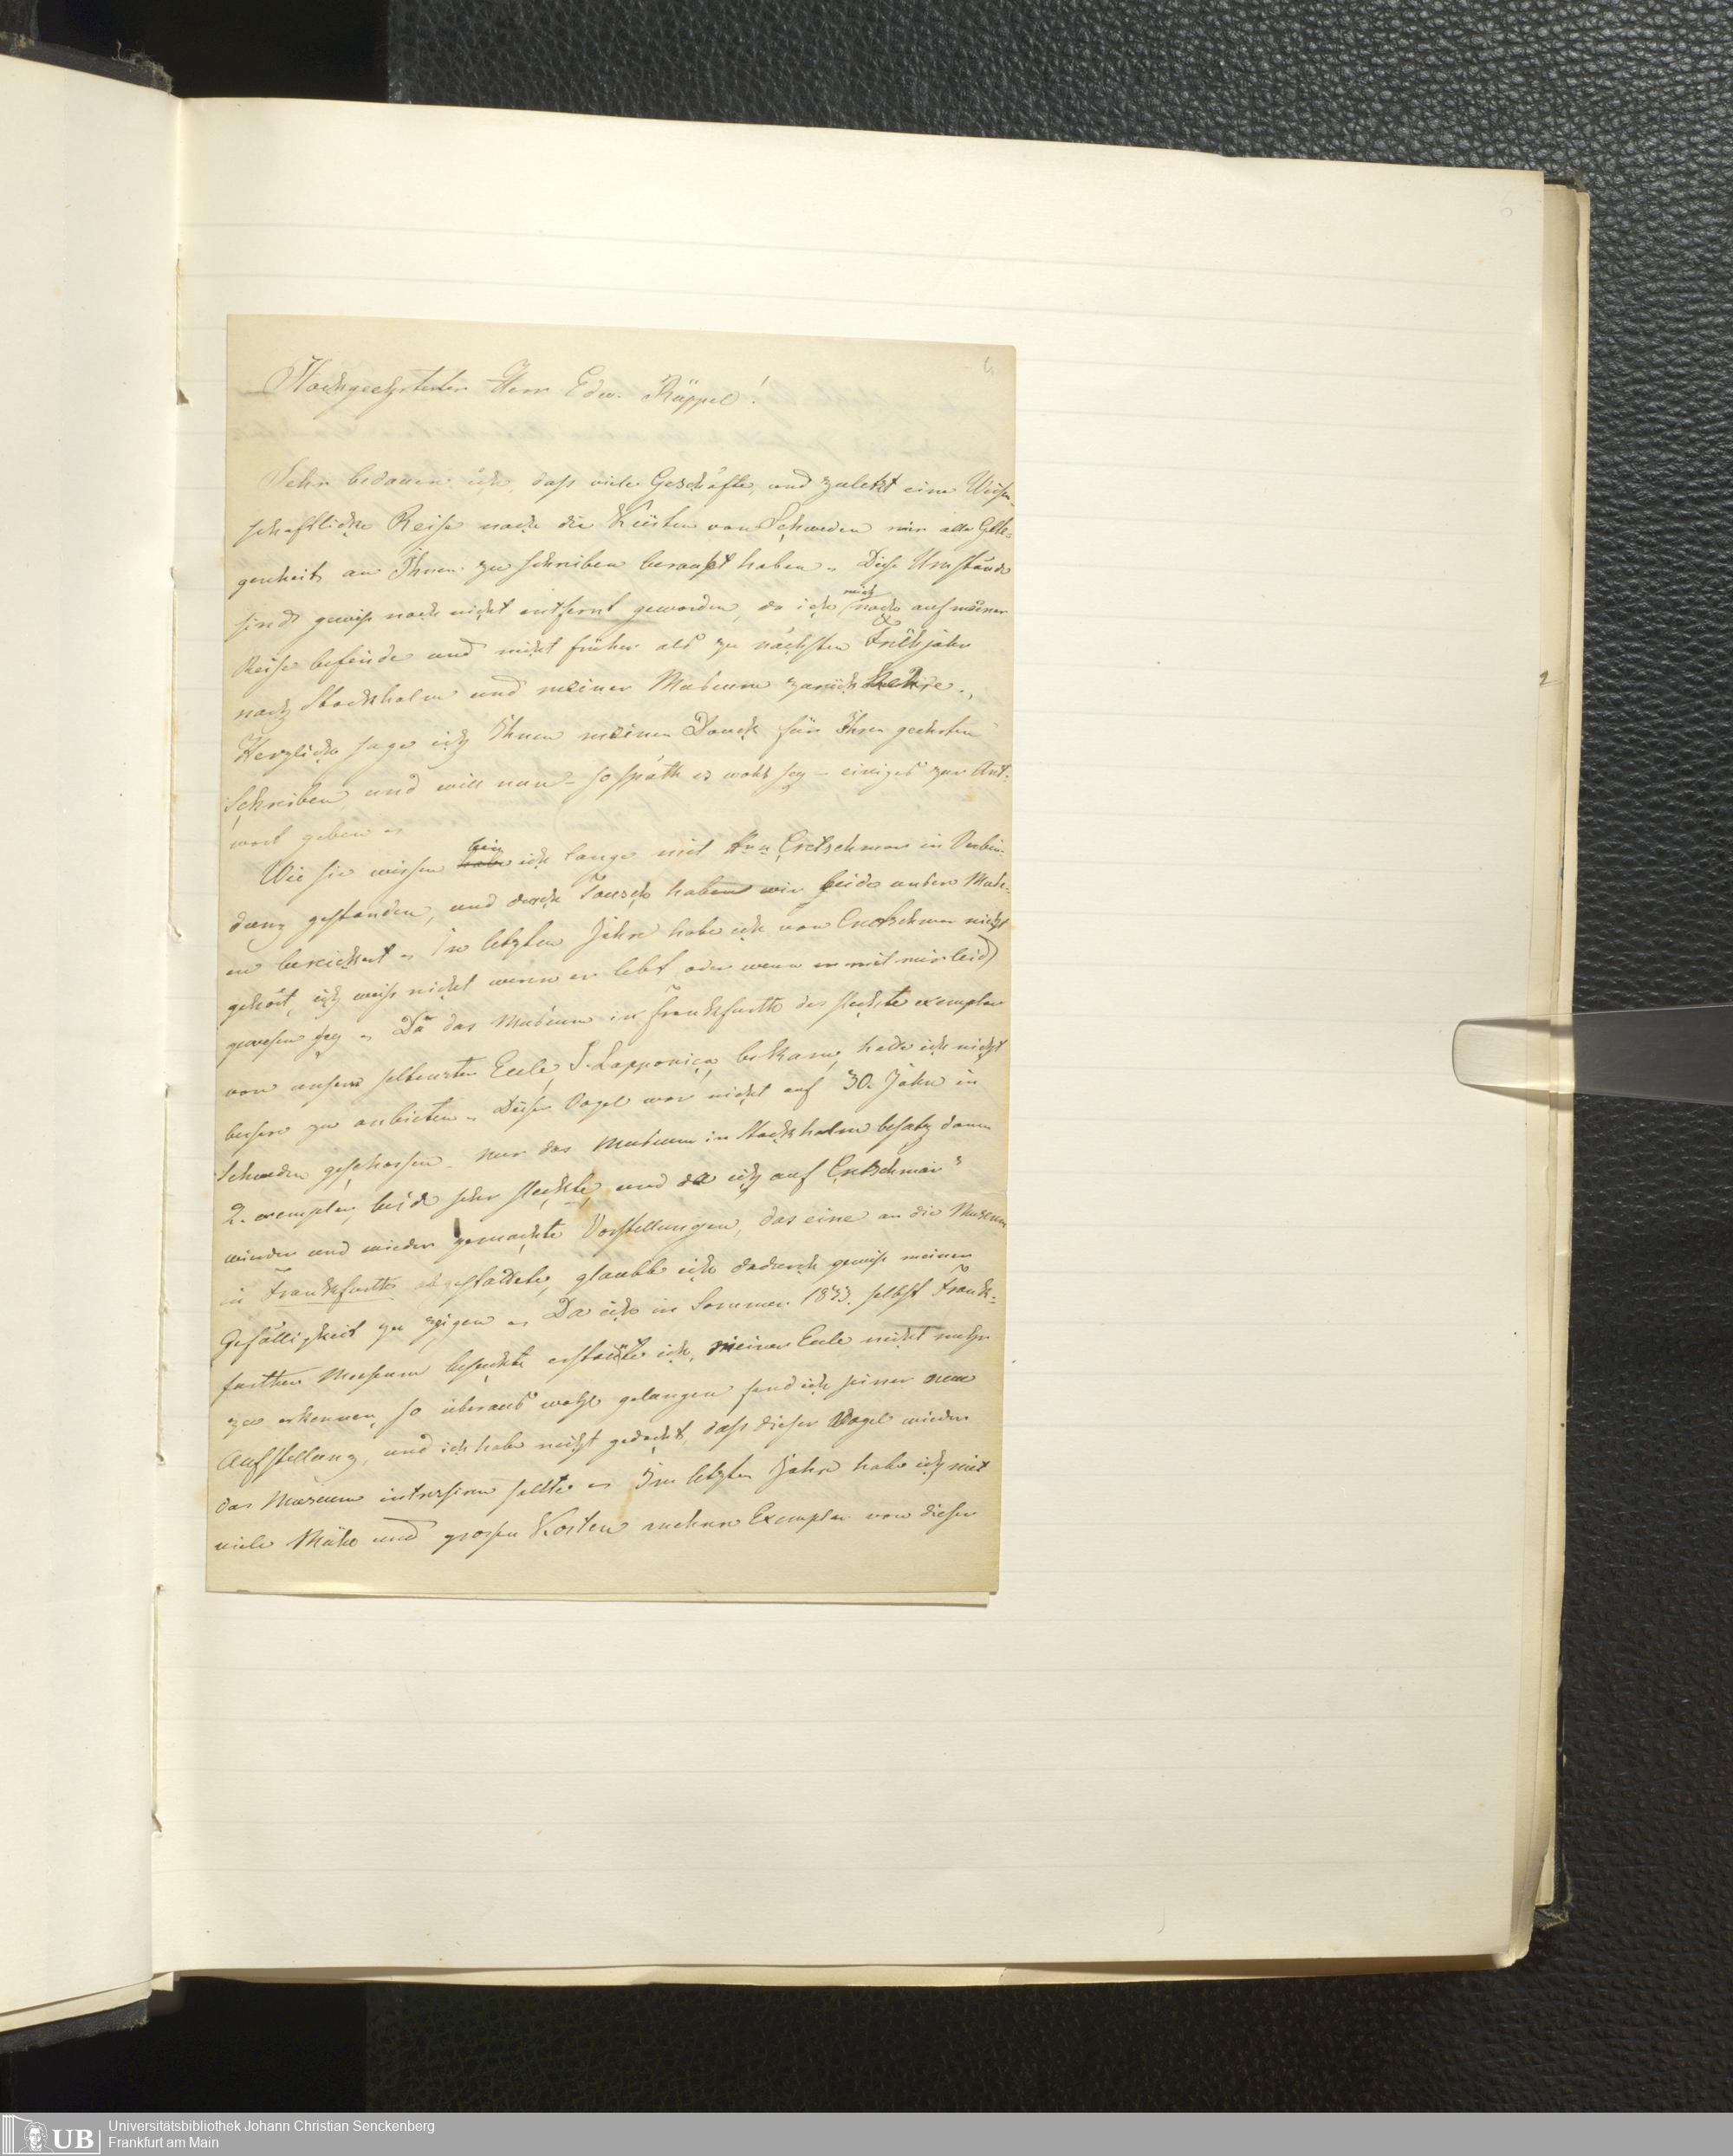 Hochgeehrtester Herr Edw. Rüppel!
Sehr bedauere ich, dass viele Geschäfte, und zuletzt eine Wissen-
schaftliche Reise nach die Küsten von Schweden mir alle Gele-
genheit an Ihnen zu schreiben beraubt haben. Diese Umstände
sind gewiss noch nicht entfernt geworden, da ich mich noch auf meiner
Reise befinde und nicht früher als zu nächsten Frühjahr
nach Stockholm und meiner Museum zurück kehre.
Herzlich sage ich Ihnen meinen Dank für Ihren geehrten
Schreiben, und will nun – so späth es wohl sey – einiges zur Ant-
wort geben
Wie sie wissen habe bin ich lange mit Hrn Cretschmar in Verbin-
dung gestanden, und durch Tausch haben wir beide unsere Muse-
en bereichert. In letzten Jahre habe ich von Cretschmar nicht
gehört, ich weiss nicht wenn er lebt oder wenn er mit mir leid
gewesen sey. Da das Museum in Frankfurth das schlechte exemplar
von unsere seltensten Eule, S. Lapponica, bekam, hatte ich nicht
besseres zu anbieten. Dieser Vogel war nicht auf 30. Jahre in
Schweden geschossen. nur das Museum in Stockholm besatz dann
2. exemplar, beide sehr schlechte, und da ich auf Cretschmar's
wieder und wieder gemachte Vorstellungen, das eine an die Museum
in Frankfurth abgestattete, glaubte ich dadurch gewiss meinen
Gefälligkeit zu zeigen. Da ich in Sommer 1833. selbst Frank-
further Museum besuchte erstaunte ich, meiner Eule nicht mehr
zu erkennen, so überaus wohl gelungen fand ich seiner neue
Aufstellung, und ich habe nicht gedacht, dass dieser Vogel wieder
das Museum intressiren sollte. Im letzten Jahre habe ich mit
viele Mühe und grossen Kosten mehrere Exemplar von dieser
2
Universitätsbibliothek Johann Christian Senckenberg
Frankfurt am Main
UB